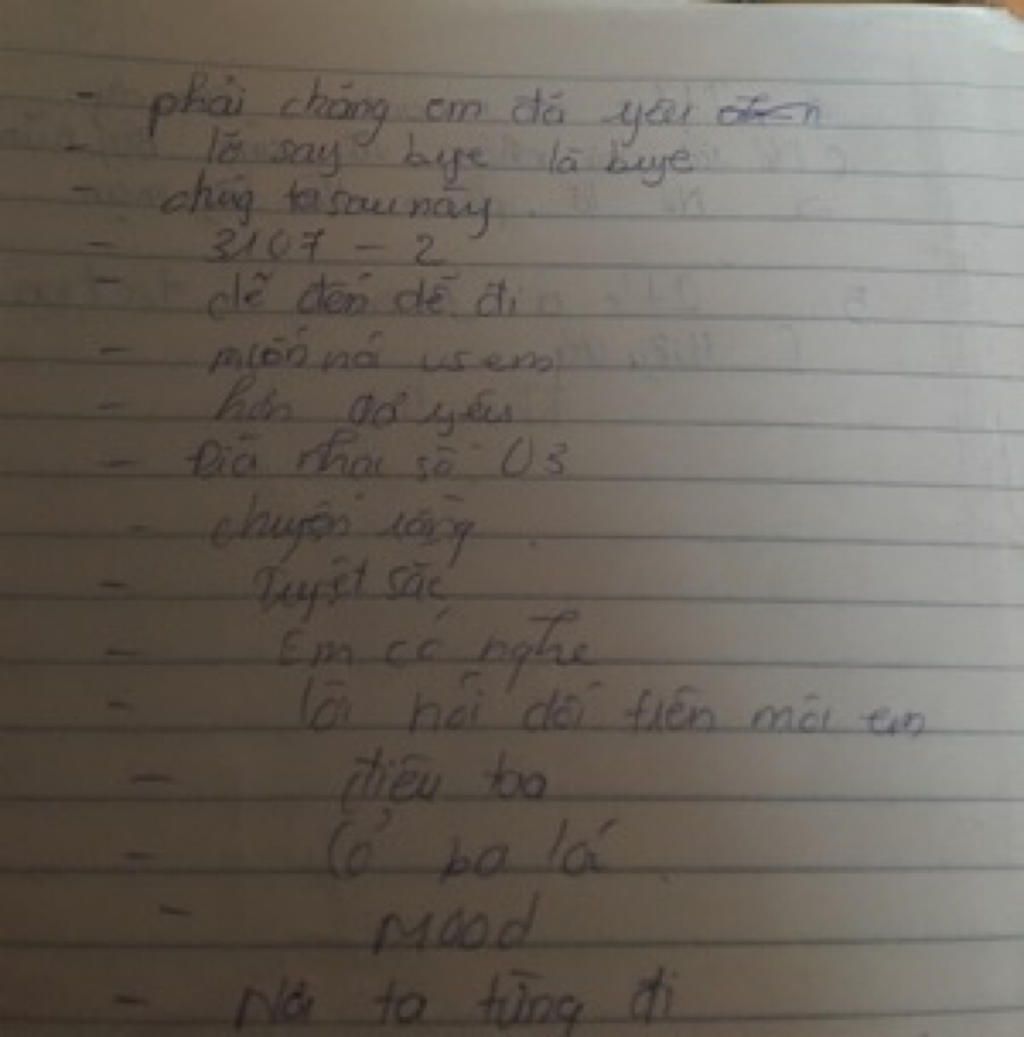 - phải chăng em đã yêu
- lỡ say bye là bye
- chúng ta sau này
- 3107 - 2
- dễ đến dễ đi
- muốn nó us em
- hơn cả yêu
- Đĩa nhạc số 03
- chuyện rằng
- Tuyệt sắc
- Em có nghe
- lời nói dối trên môi em
- điêu toa
- Cỏ ba lá
- Mood
- Nơi ta từng đi